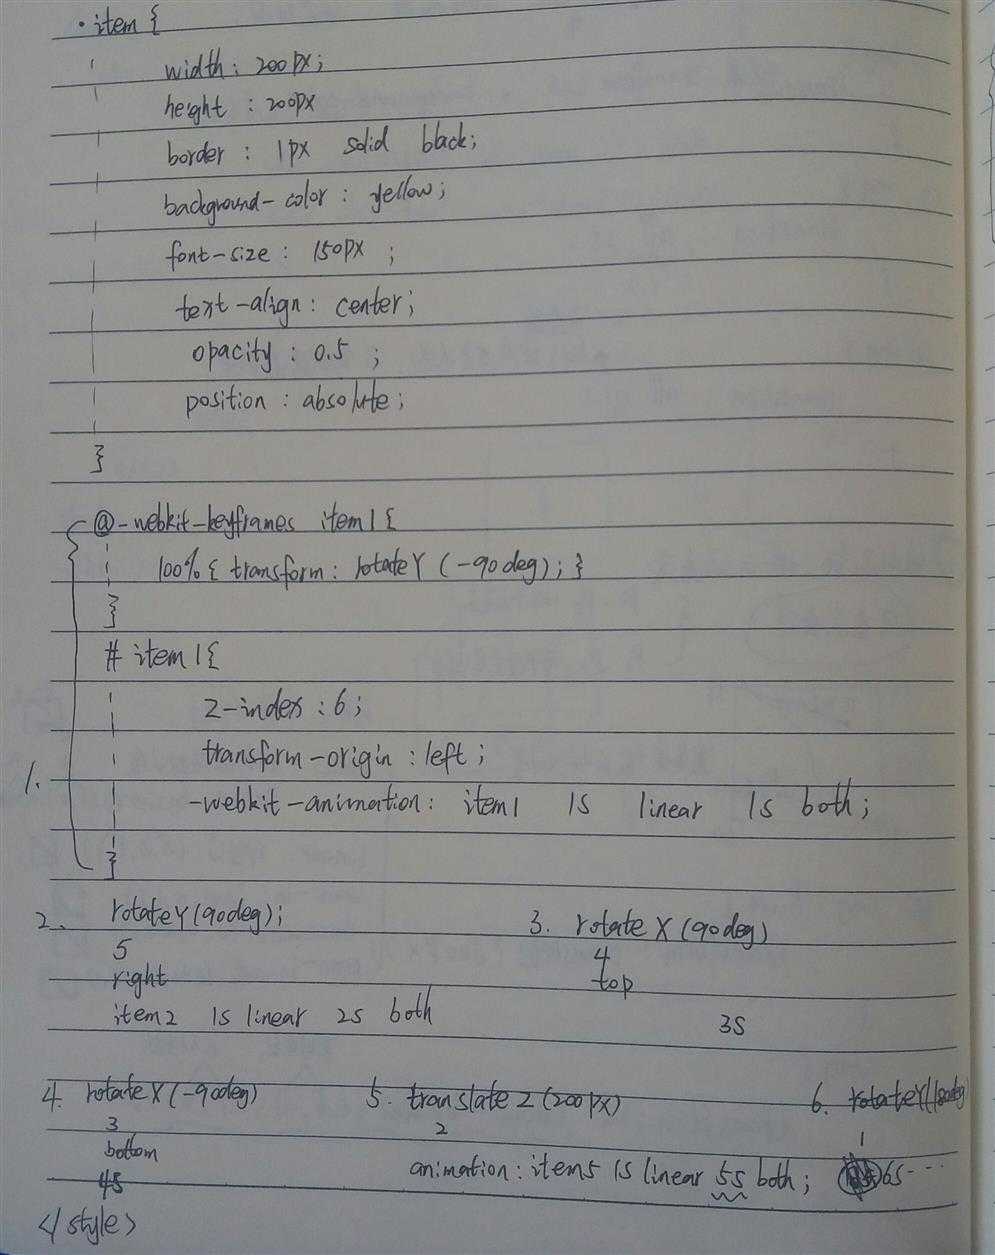 .item {
width: 200px;
height : 200px
border : 1px solid black;
background-color : yellow;
font-size : 150px ;
text-align : center;
opacity : 0.5 ;
position : absolute;
}
@-webkit-keyframes item1 {
100% { transform : rotateY (-90deg) ; }
}
# item1 {
z-index : 6 ;
transform-origin : left ;
1.
-webkit-animation : item1 1s linear 1s both ;
}
2. rotateY (90deg) ;
3. rotate X (90deg)
5
4
right
top
item2 1s linear 2s both
3s
4. rotateX (-90deg)
5. translate Z (200px)
6. rotateY(180deg)
3
2
1
bottom
animation : item5 1s linear 5s both ;
6s ...
4s
</style>